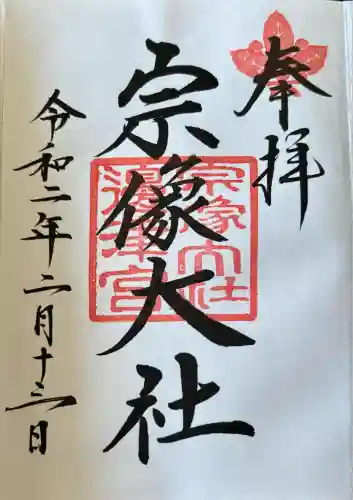 奉拝
宗像大社
宗像大社
邊津宮
令和二年二月十三日